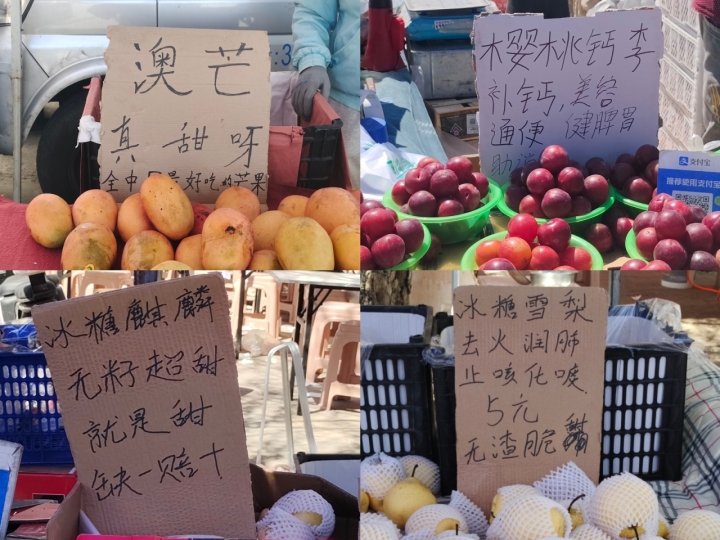 澳芒
真甜呀
全中国最好吃的芒果
樱桃钙李
补钙,美容
通便 健脾胃
助
支付宝
推荐使用支付宝
冰糖麒麟
无籽超甜
就是甜
缺一赔十
冰糖雪梨
去火润肺
止咳化痰
5元
无渣脆甜